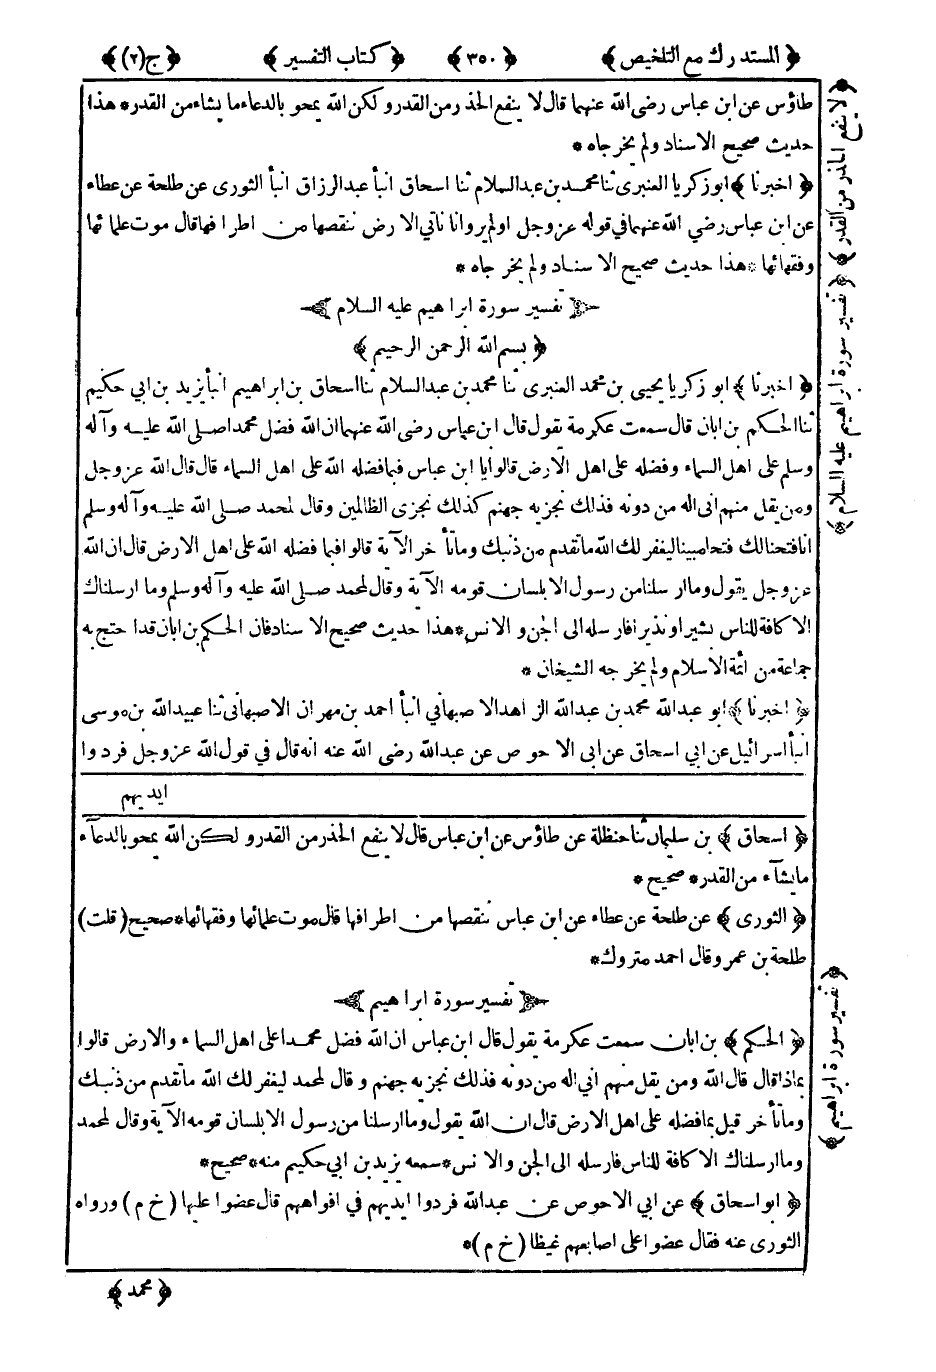 ﴿ المستدرك مع التلخيص ﴾ ﴿ ٣٥٠ ﴾ ﴿ كتاب التفسير ﴾ ﴿ ج(٢) ﴾
طاؤس عن ابن عباس رضى الله عنهما قال لا ينفع الحذر من القدر و لكن الله يمحو بالدعاء ما يشاء من القدر * هذا
حديث صحيح الاسناد ولم يخرجاه *
﴿ اخبرنا ﴾ ابو زكريا العنبرى ثنا محمد بن عبد السلام ثنا اسحاق انبأ عبد الرزاق انبأ الثورى عن طلحة عن عطاء
عن ابن عباس رضي الله عنهما في قوله عز وجل اولم يروا انا ناتي الارض ننقصها من اطرافها قال موت علمائها
وفقهائها * هذا حديث صحيح الاسناد ولم يخرجاه *
تفسير سورة ابراهيم عليه السلام
﴿ بسم الله الرحمن الرحيم ﴾
﴿ اخبرنا ﴾ ابو زكريا يحيى بن محمد العنبرى ثنا محمد بن عبد السلام ثنا اسحاق بن ابراهيم انبأ يزيد بن ابي حكيم
ثنا الحكم بن ابان قال سمعت عكرمة يقول قال ابن عباس رضى الله عنهما ان الله فضل محمدا صلى الله عليه وآله
وسلم على اهل السماء وفضله على اهل الارض قالوا يا ابن عباس فبما فضله الله على اهل السماء قال قال الله عز وجل
ومن يقل منهم انى اله من دونه فذلك نجزيه جهنم كذلك نجزى الظالمين وقال لمحمد صلى الله عليه وآله وسلم
انا فتحنا لك فتحا مبينا ليغفر لك الله ما تقدم من ذنبك وما تأخر الآية قالوا فبما فضله الله على اهل الارض قال ان الله
عز وجل يقول وما ارسلنا من رسول الا بلسان قومه الآية وقال لمحمد صلى الله عليه وآله وسلم وما ارسلناك
الا كافة للناس بشيرا ونذيرا فارسله الى الجن و الانس * هذا حديث صحيح الاسناد فان الحكم بن ابان قد احتج به
جماعة من ائمة الاسلام ولم يخرجه الشيخان *
﴿ اخبرنا ﴾ ابو عبدالله محمد بن عبدالله الزاهد الاصبهاني انبأ احمد بن مهران الاصبهانى ثنا عبيدالله بن موسى
انبأ اسرائيل عن ابي اسحاق عن ابى الاحوص عن عبدالله رضى الله عنه انه قال في قول الله عز وجل فردوا
ايديهم
﴿ اسحاق ﴾ بن سليمان ثنا حنظلة عن طاؤس عن ابن عباس قال لا ينفع الحذر من القدر و لكن الله يمحو بالدعآء
ما يشآء من القدر * صحيح *
﴿ الثورى ﴾ عن طلحة عن عطاء عن ابن عباس ننقصها من اطرافها قال موت علمائها وفقهائها * صحيح ( قلت )
طلحة بن عمرو قال احمد متروك *
تفسير سورة ابراهيم
﴿ الحكم ﴾ بن ابان سمعت عكرمة يقول قال ابن عباس ان الله فضل محمدا على اهل السماء والارض قالوا
بماذا قال قال الله ومن يقل منهم اني اله من دونه فذلك نجزيه جهنم و قال لمحمد ليغفر لك الله ما تقدم من ذنبك
وما تأخر قيل بما فضله على اهل الارض قال ان الله يقول وما ارسلنا من رسول الا بلسان قومه الآية وقال لمحمد
وما ارسلناك الا كافة للناس فارسله الى الجن والانس * سمعه يزيد بن ابي حكيم منه * صحيح *
﴿ ابو اسحاق ﴾ عن ابي الاحوص عن عبدالله فردوا ايديهم في افواههم قال عضوا عليها ( خ م ) ورواه
الثورى عنه فقال عضوا على اصابعهم غيظا ( خ م ) *
﴿ محمد ﴾
﴿ لا ينفع الحذر من القدر ﴾ ﴿ تفسير سورة ابراهيم عليه السلام ﴾
﴿ تفسير سورة ابراهيم ﴾